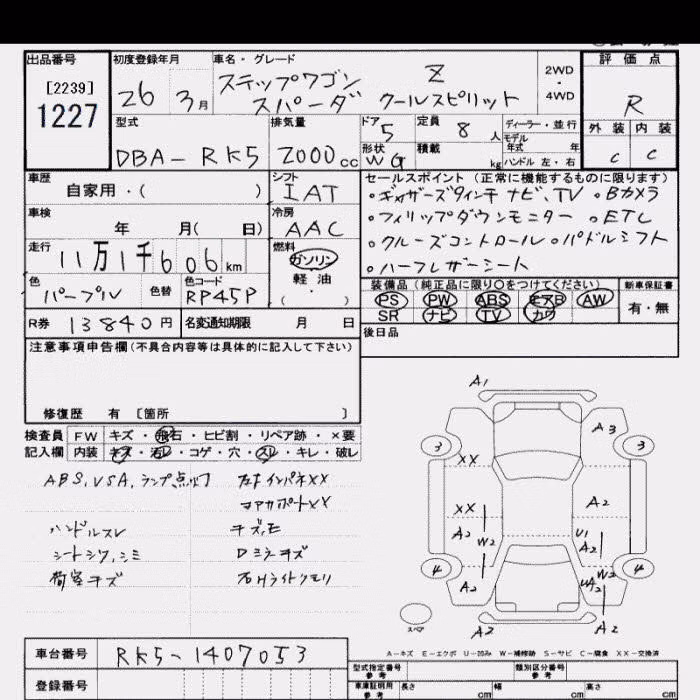 出品番号
[2239]
1227
初度登録年月
26 3月
車名・グレード
ステップワゴン Z
スパーダ クールスピリット
2WD
4WD
評価点
R
外装 内装
C C
型式
DBA-RK5
排気量
2000cc
ドア
5
形状
WG
定員
8人
積載
kg
ディーラー・並行
モデル
年式 年
ハンドル 左・右
車歴
自家用・( )
シフト
IAT
車検
年 月( 日)
冷房
AAC
走行
11万1千606km
燃料
ガソリン
軽油
( )
色
パープル
色替
色コード
RP45P
R券 13840円
名変通知期限 月 日
セールスポイント(正常に機能するものに限ります)
・ギャザーズ9インチナビ、TV ・Bカメラ
・フィリップダウンモニター ・ETC
・クルーズコントロール ・パドルシフト
・ハーフレザーシート
装備品(純正品に限り○をつけてください)
PS PW ABS エアB AW
SR ナビ TV カワ
新車保証書
有・無
後日品
注意事項申告欄(不具合内容等は具体的に記入して下さい)
修復歴 有 〔箇所 〕
検査員
記入欄
FW キズ・飛石・ヒビ割・リペア跡・×要
内装 キズ・汚レ・コゲ・穴・スレ・キレ・破レ
ABS,VSA,ランプ点灯
ハンドルスレ
シートシワ,シミ
荷室キズ
インパネXX
コアサポートXX
Dミラーキズ
右Hライトクモリ
A1
A3
3
3
XX
XX
A2
A2
W2
U1
A2
4
4
A2
W2
A2
A2
スペア
A-キズ E-エクボ U-凹み W-補修跡 S-サビ C-腐食 XX-交換済
車台番号 RK5-1407053
登録番号
型式指定番号
参考
類別区分番号
参考
車庫証明用
参考
長さ cm
幅 cm
高さ cm